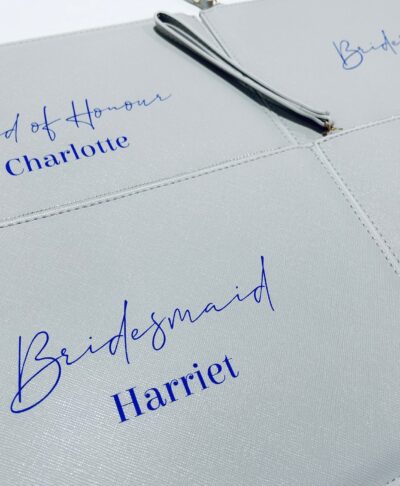 d of Honour
Charlotte
Brides
Bridesmaid
Harriet